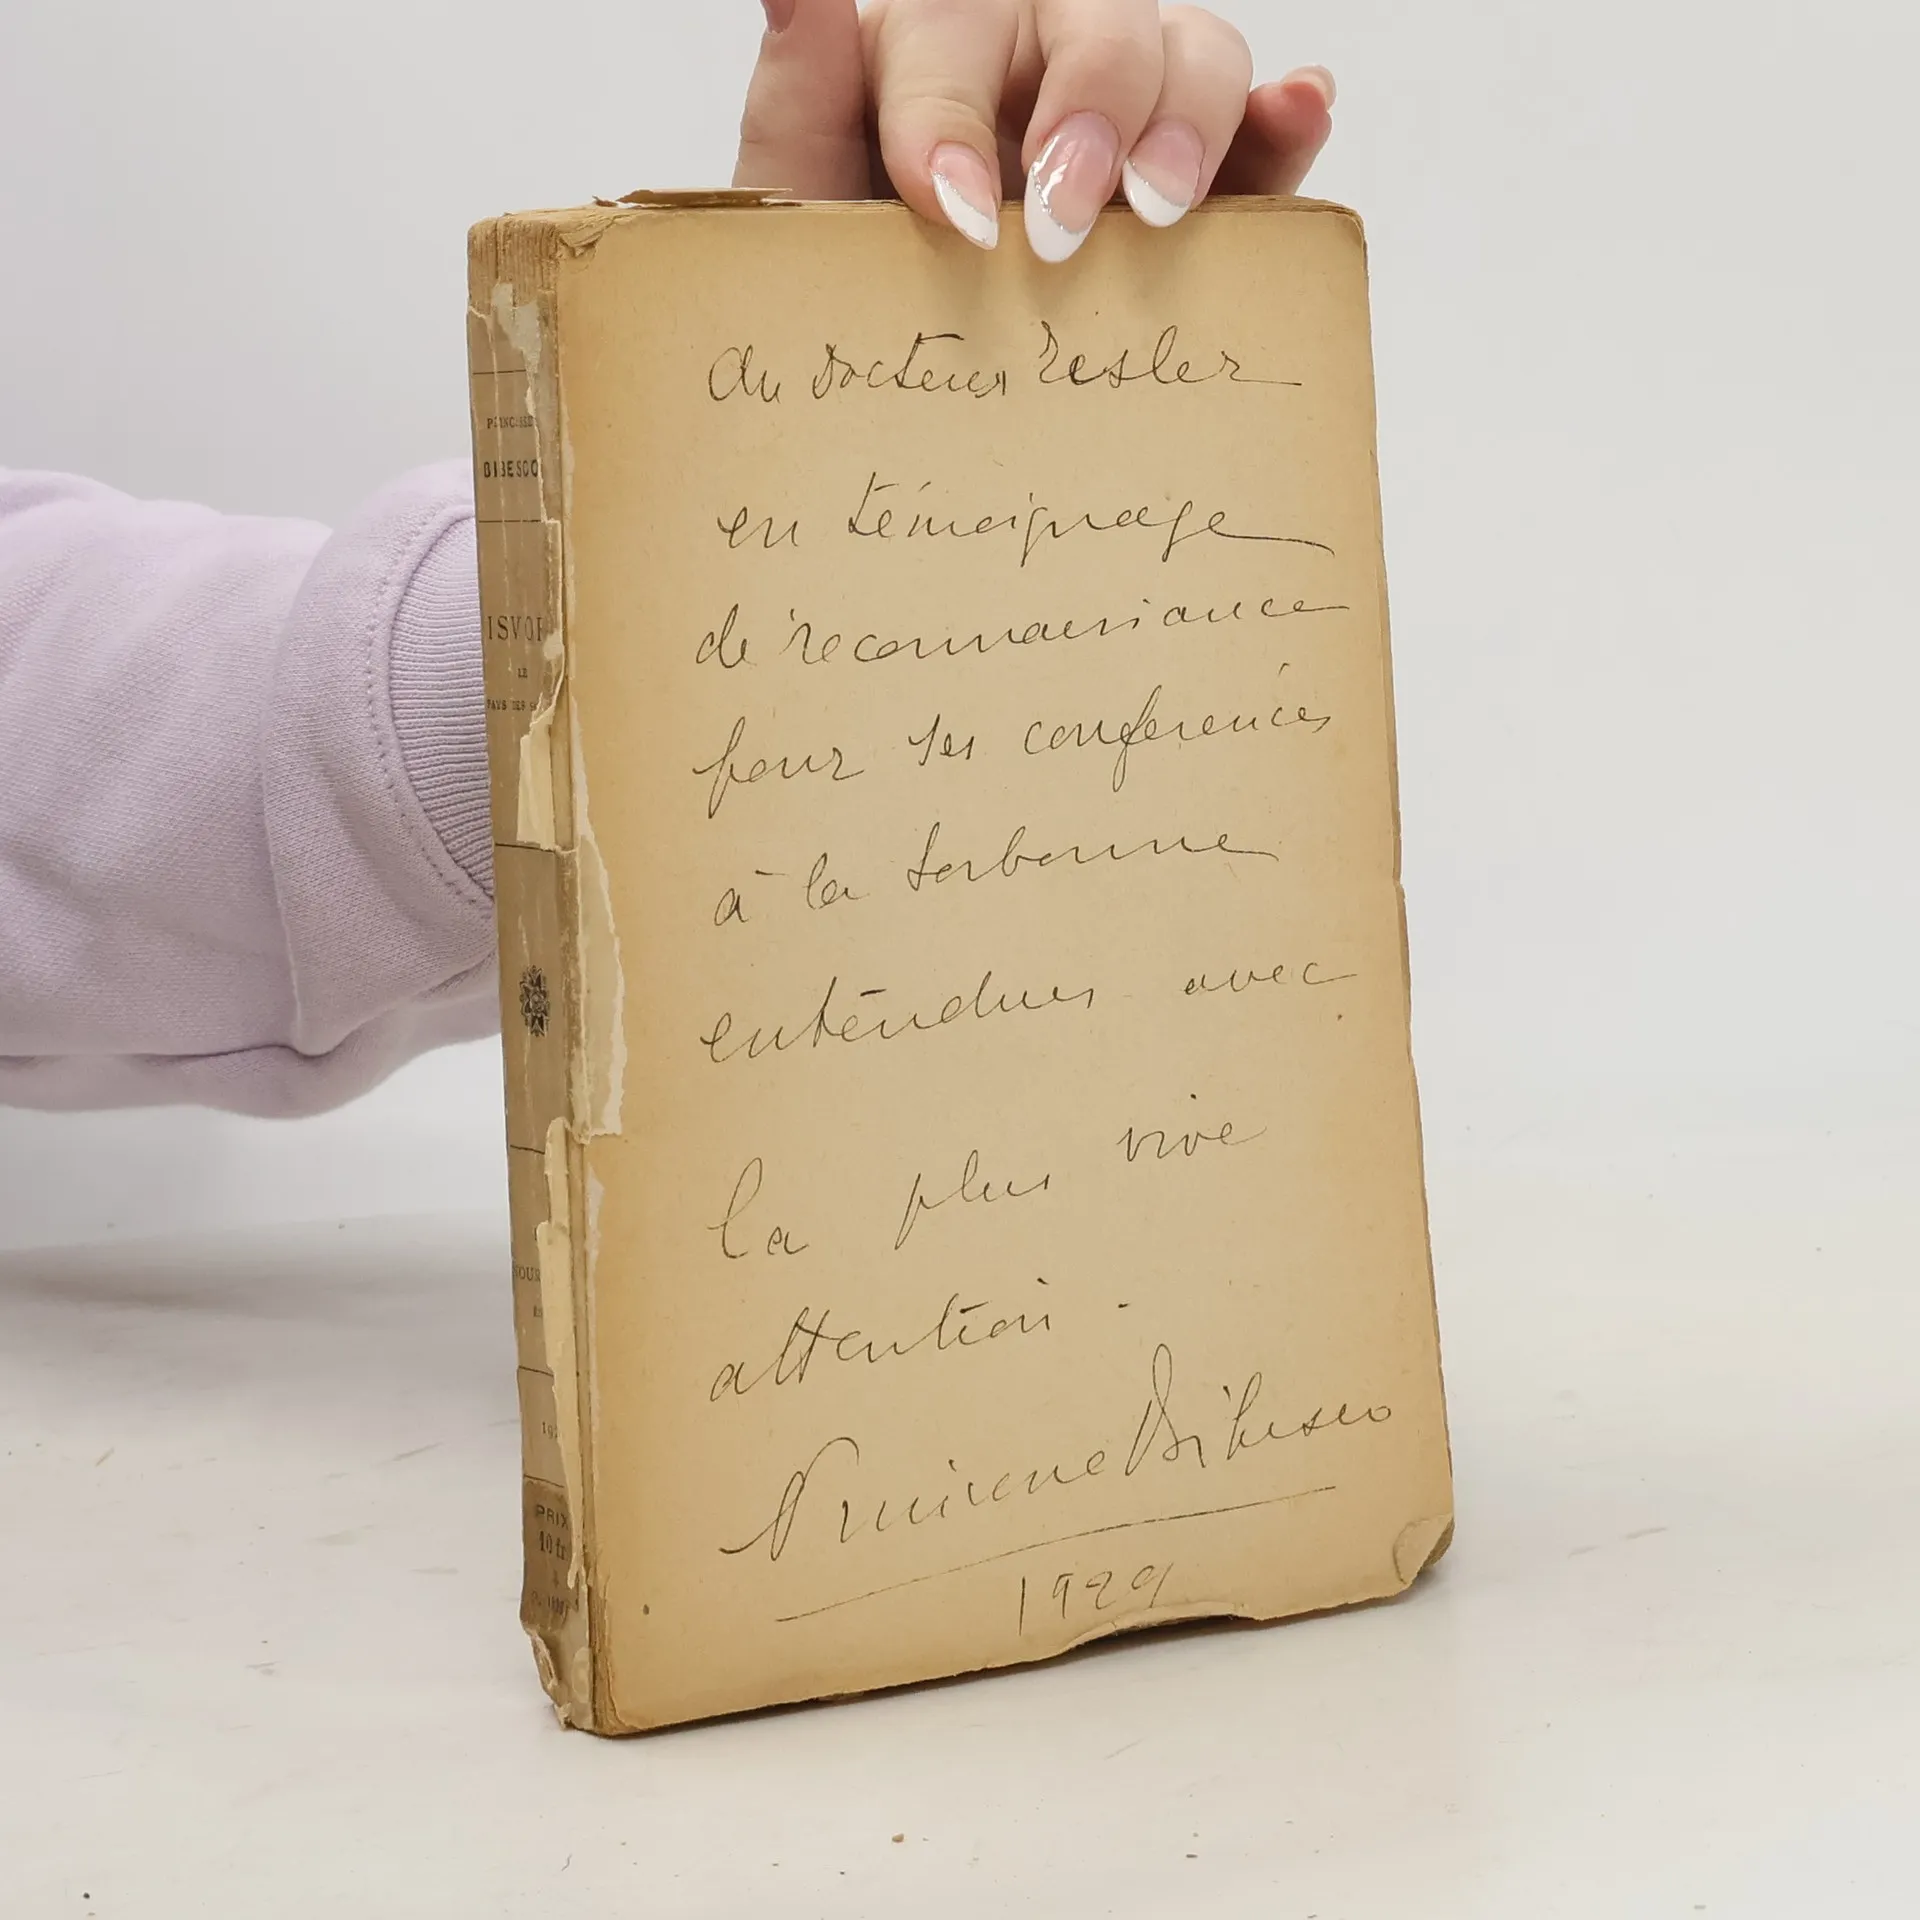 PRINCESSE
BIBESCO
ISVOR
LE
PAYS DES
PRIX
10 fr
Au Docteur
en témoignage
de reconnaissance
pour ses conférences
à la Sorbonne
entendues avec
la plus vive
attention.
Princesse Bibesco
1929